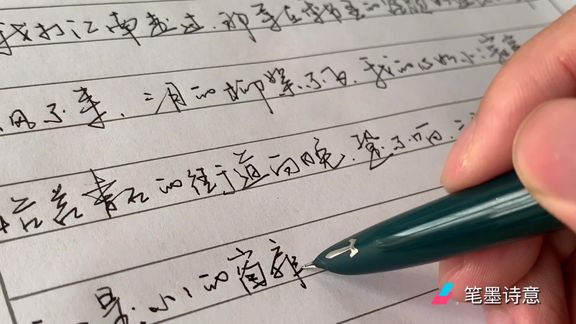 我打江南走过，那等在季节里的容颜如莲花
东风不来，三月的柳絮不飞，我的心如小小寂寞
恰若青石的街道向晚，跫音不响，三
是小小的窗扉
笔墨诗意